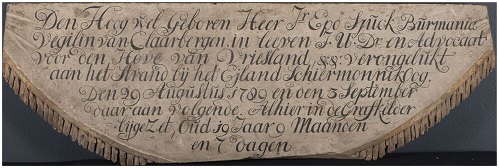 Den Hoog wel Geboren Heer Jr. Epo Sjuck Burmania
Vegilin van Claerbergen in leeven J.U.Dr. en Advocaat
voor den Hove van Vriesland, &s: verongelukt
aan het Strand bij het Eiland Schiermonnikoog.
Den 29 Augustus 1799 en den 3 September
daar aan volgende Alhier in de Grafkelder
bijgezet, Oud 29 Jaar 9 Maanden
en 7 Dagen